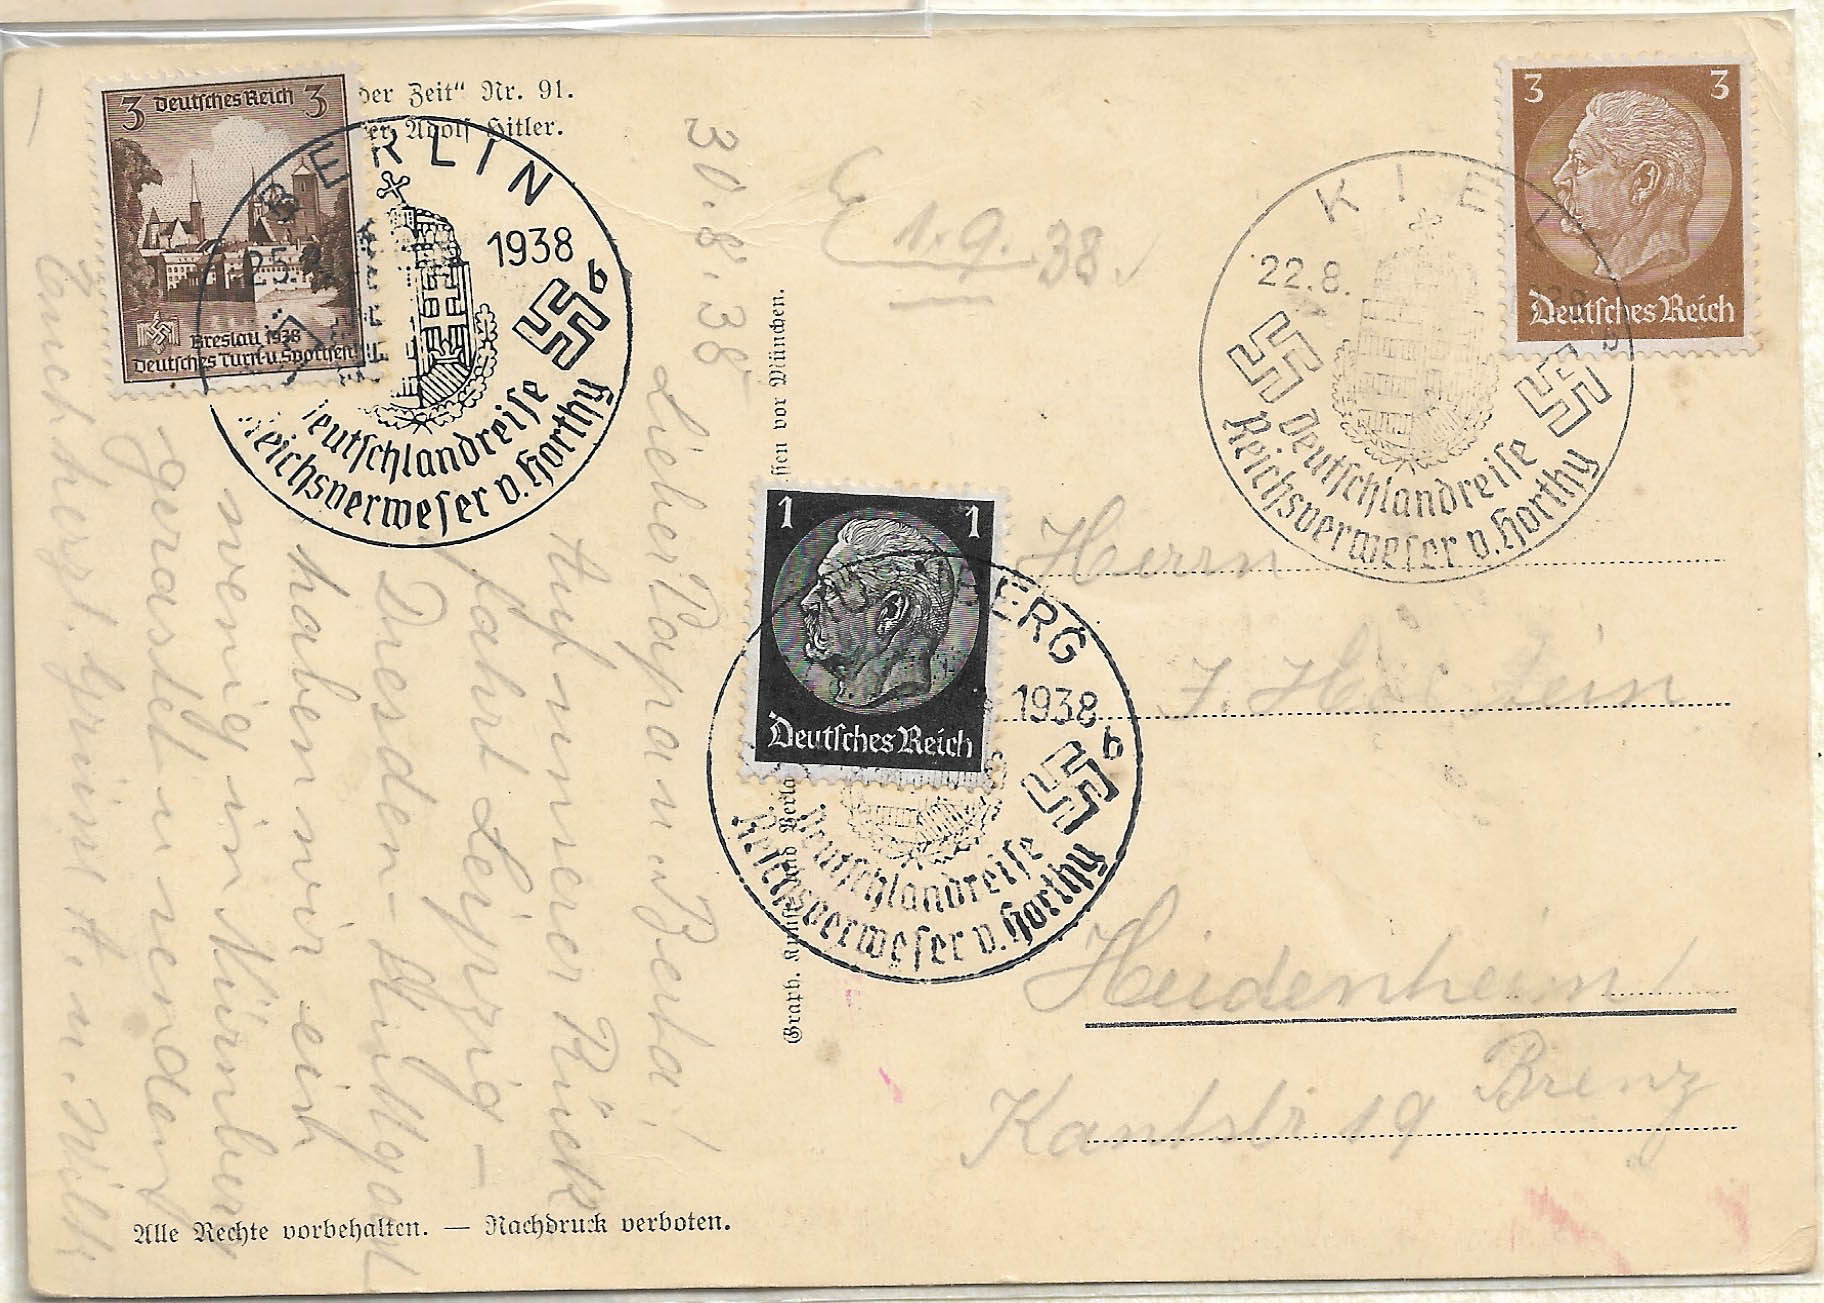 der Zeit“ Nr. 91.
Adolf Hitler.
3 Deutsches Reich 3
Breslau 1938
Deutsches Turn-u. Sportfest
BERLIN
25.8.
1938
b
Deutschlandreise
Reichsverweser v. Horthy
3 3
Deutsches Reich
KIEL
22.8.
b
Deutschlandreise
Reichsverweser v. Horthy
1 1
Deutsches Reich
BERG
1938
b
Deutschlandreise
Reichsverweser v. Horthy
E 1.9.38.
30.8.38
Lieber Papa u. Berta!
Auf unserer Rück
fahrt Leipzig –
Dresden – Stuttgart
haben wir ein
wenig in Nürnberg
gerastet u. senden
Euch herzl. Grüsse
Herrn
Heidenheim/
Brenz
Kantstr 19
sen vor München.
Graph. Kunst und Verla
Alle Rechte vorbehalten. — Nachdruck verboten.